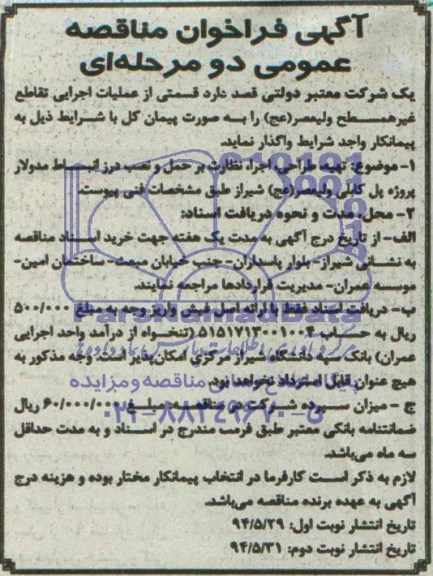 آگهی فراخوان مناقصه
عمومی دو مرحله‌ای
یک شرکت معتبر دولتی قصد دارد قسمتی از عملیات اجرایی تقاطع
غیرهمسطح ولیعصر(عج) را به صورت پیمان کل با شرایط ذیل به
پیمانکار واجد شرایط واگذار نماید.
۱- موضوع: تهیه، طراحی، اجرا، نظارت بر حمل و نصب درز انبساط مدولار
پروژه پل کابلی ولیعصر(عج) شیراز طبق مشخصات فنی پیوست.
۲- محل، مدت و نحوه دریافت اسناد:
الف- از تاریخ درج آگهی به مدت یک هفته جهت خرید اسناد مناقصه
به نشانی شیراز- بلوار پاسداران- جنب خیابان مبعث- ساختمان امین-
موسسه عمران- مدیریت قراردادها مراجعه نمایند.
ب- دریافت اسناد فقط با ارائه اصل فیش واریز وجه به مبلغ ۵۰۰/۰۰۰
ریال به حساب ۵۱۵۱۷۱۳۰۰۱۰۰۴ (تنخواه از درآمد واحد اجرایی
عمران) بانک سپه دانشگاه شیراز مرکزی امکان‌پذیر است وجه مذکور به
هیچ عنوان قابل استرداد نخواهد بود.
ج - میزان سپرده شرکت در مناقصه به مبلغ ۶۰/۰۰۰/۰۰۰ ریال
ضمانتنامه بانکی معتبر طبق فرمت مندرج در اسناد و به مدت حداقل
سه ماه می‌باشد.
لازم به ذکر است کارفرما در انتخاب پیمانکار مختار بوده و هزینه درج
آگهی به عهده برنده مناقصه می‌باشد.
تاریخ انتشار نوبت اول: ۹۴/۵/۲۹
تاریخ انتشار نوبت دوم: ۹۴/۵/۳۱
۰۲۱-۸۸۳۴۹۶۷۰-۵